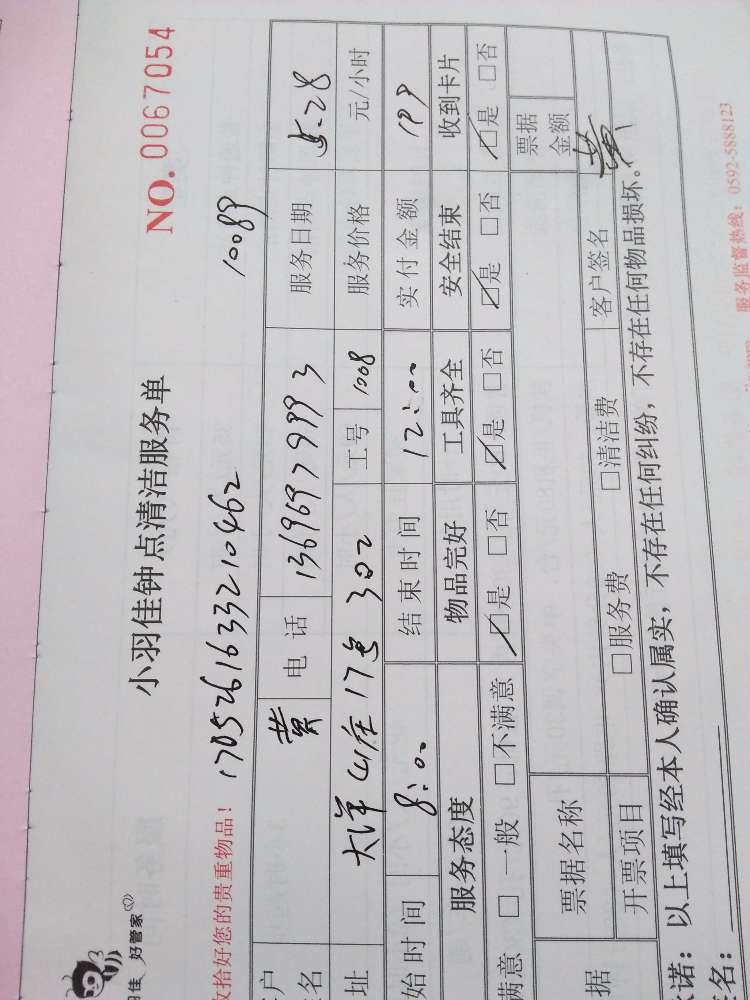 小羽佳钟点清洁服务单
NO. 0067054
好管家
羽佳
收拾好您的贵重物品!
1705261633210462 10089
户 名 黄 电话 13696979993 服务日期 5.28
址 大洋山庄17 302 工号 1008 服务价格 元/小时
始时间 8:00 结束时间 12:00 实付金额 199
服务态度 物品完好 工具齐全 安全结束 收到卡片
满意 □一般 □不满意 ☑是 □否 ☑是 □否 ☑是 □否 ☑是 □否
据 票据名称 票据金额
开票项目 □服务费 □清洁费 客户签名 黄
诺:以上填写经本人确认属实,不存在任何纠纷,不存在任何物品损坏。
签名:
服务监督热线:0592-5888123